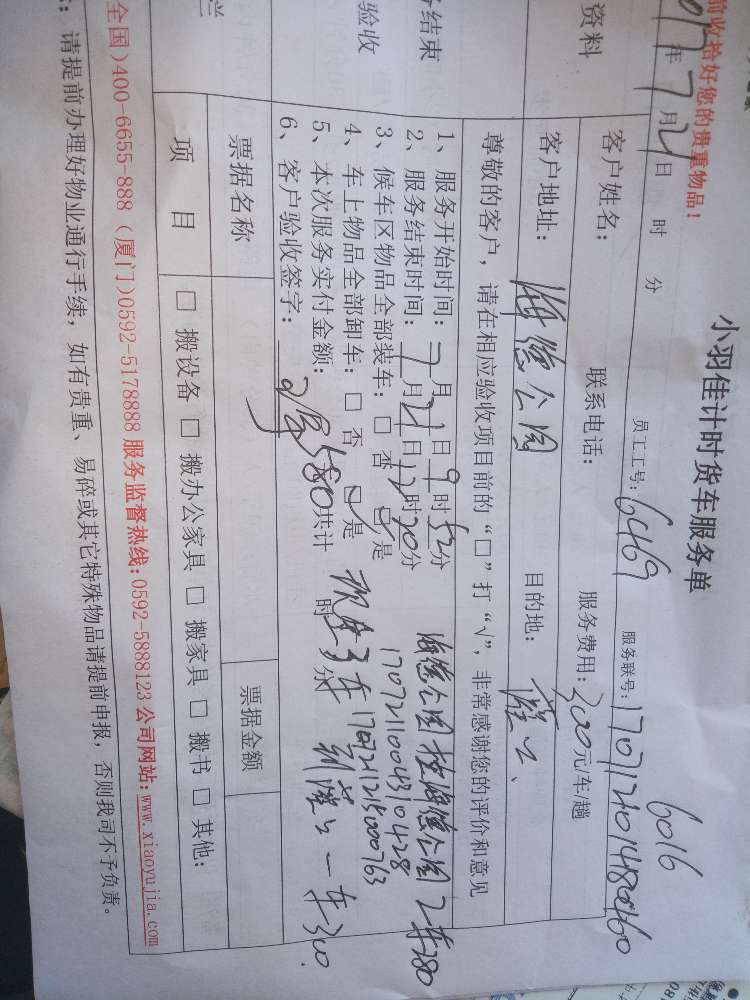 前收拾好您的贵重物品!
小羽佳计时货车服务单
6016
17年7月21日 时 分 员工工号: 6469 服务联号: 170712101480460
资料
客户姓名: 联系电话: 服务费用: 300元车/趟
客户地址: 海德公园 目的地:
尊敬的客户,请在相应验收项目前的“□”打“√”,非常感谢您的评价和意见
务结束
验收
1、服务开始时间: 7月21日9时52分
2、服务结束时间: 7月21日12时20分
3、候车区物品全部装车: □ 否 □ 是
4、车上物品全部卸车: □ 否 □ 是
5、本次服务实付金额: 580共计 时 分
6、客户验收签字:
海德公园 海德公园 2车280
1707211004310428
1707211215000763
一车300.
栏
票据名称 票据金额
项 目 □ 搬设备 □ 搬办公家具 □ 搬家具 □ 搬书 □ 其他:
全国)400-6655-888(厦门)0592-5178888 服务监督热线:0592-5888123 公司网站:www.xiaoyujia.com
:请提前办理好物业通行手续,如有贵重、易碎或其它特殊物品请提前申报,否则我司不予负责。